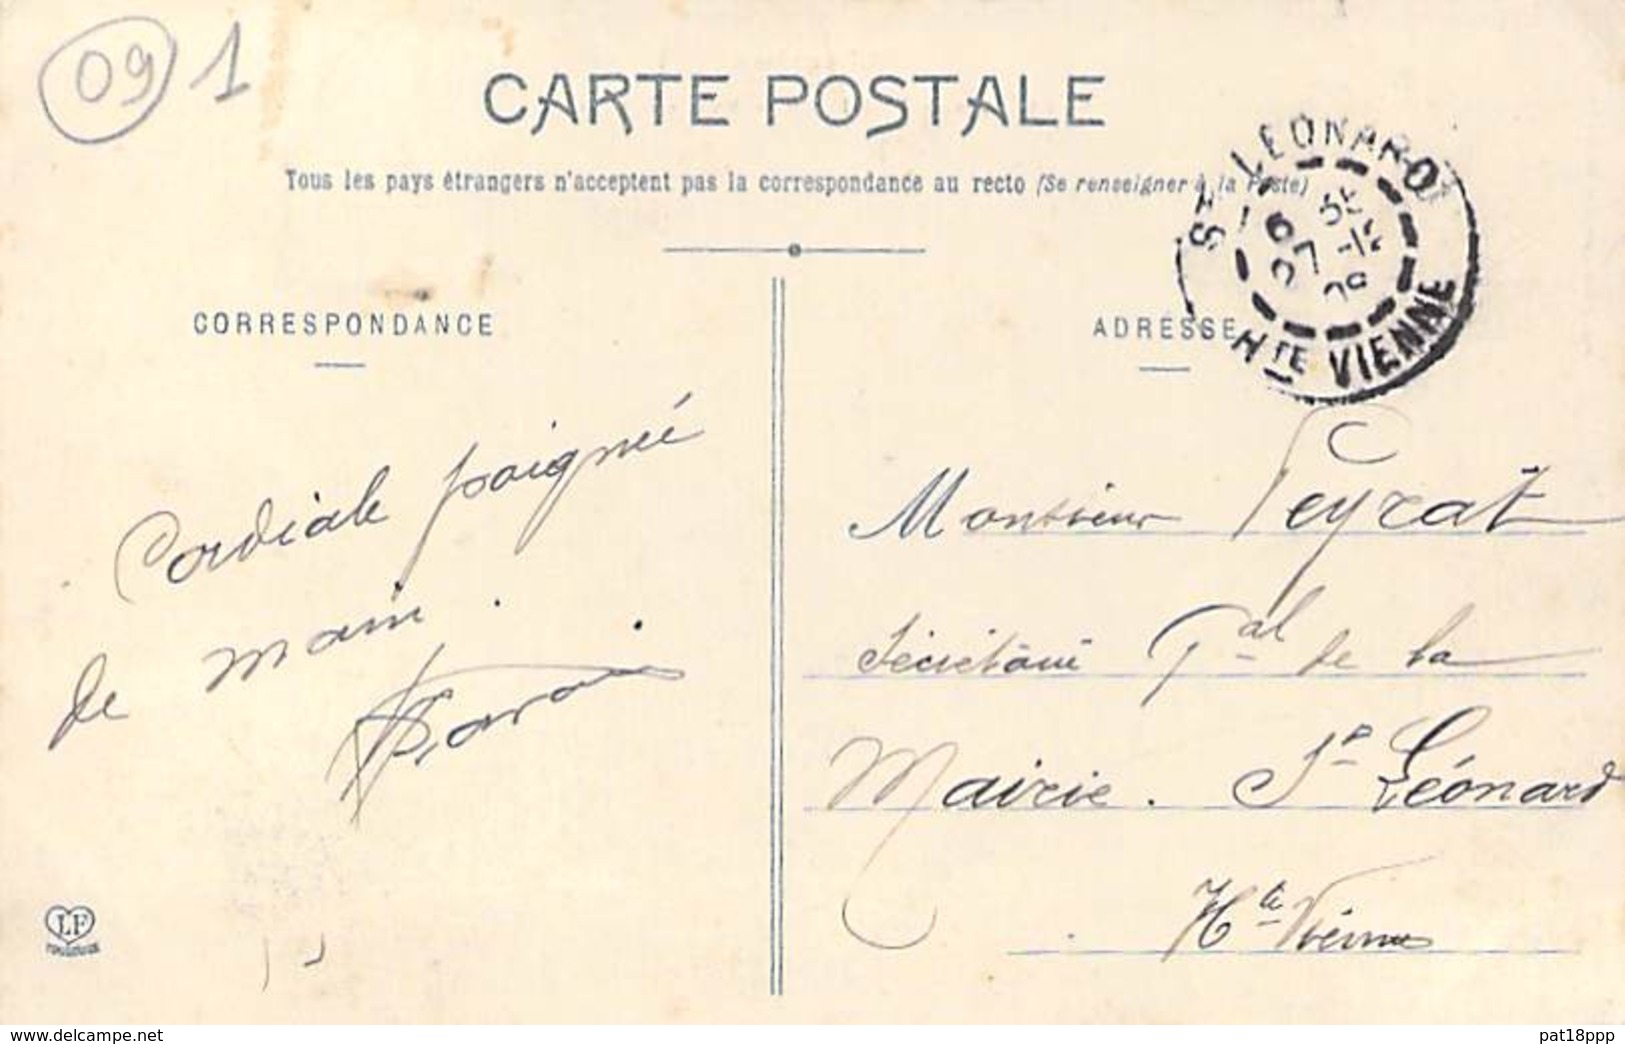 091
CARTE POSTALE
Tous les pays étrangers n'acceptent pas la correspondance au recto (Se renseigner à la Poste)
St LEONARD
Hte VIENNE
CORRESPONDANCE
ADRESSE
Cordiale poignée
de main.
Monsieur Peyrat
Sécrétaire Gal de la
Mairie. St Léonard
Hte Vienne
LF
www.delcampe.net
pat18ppp